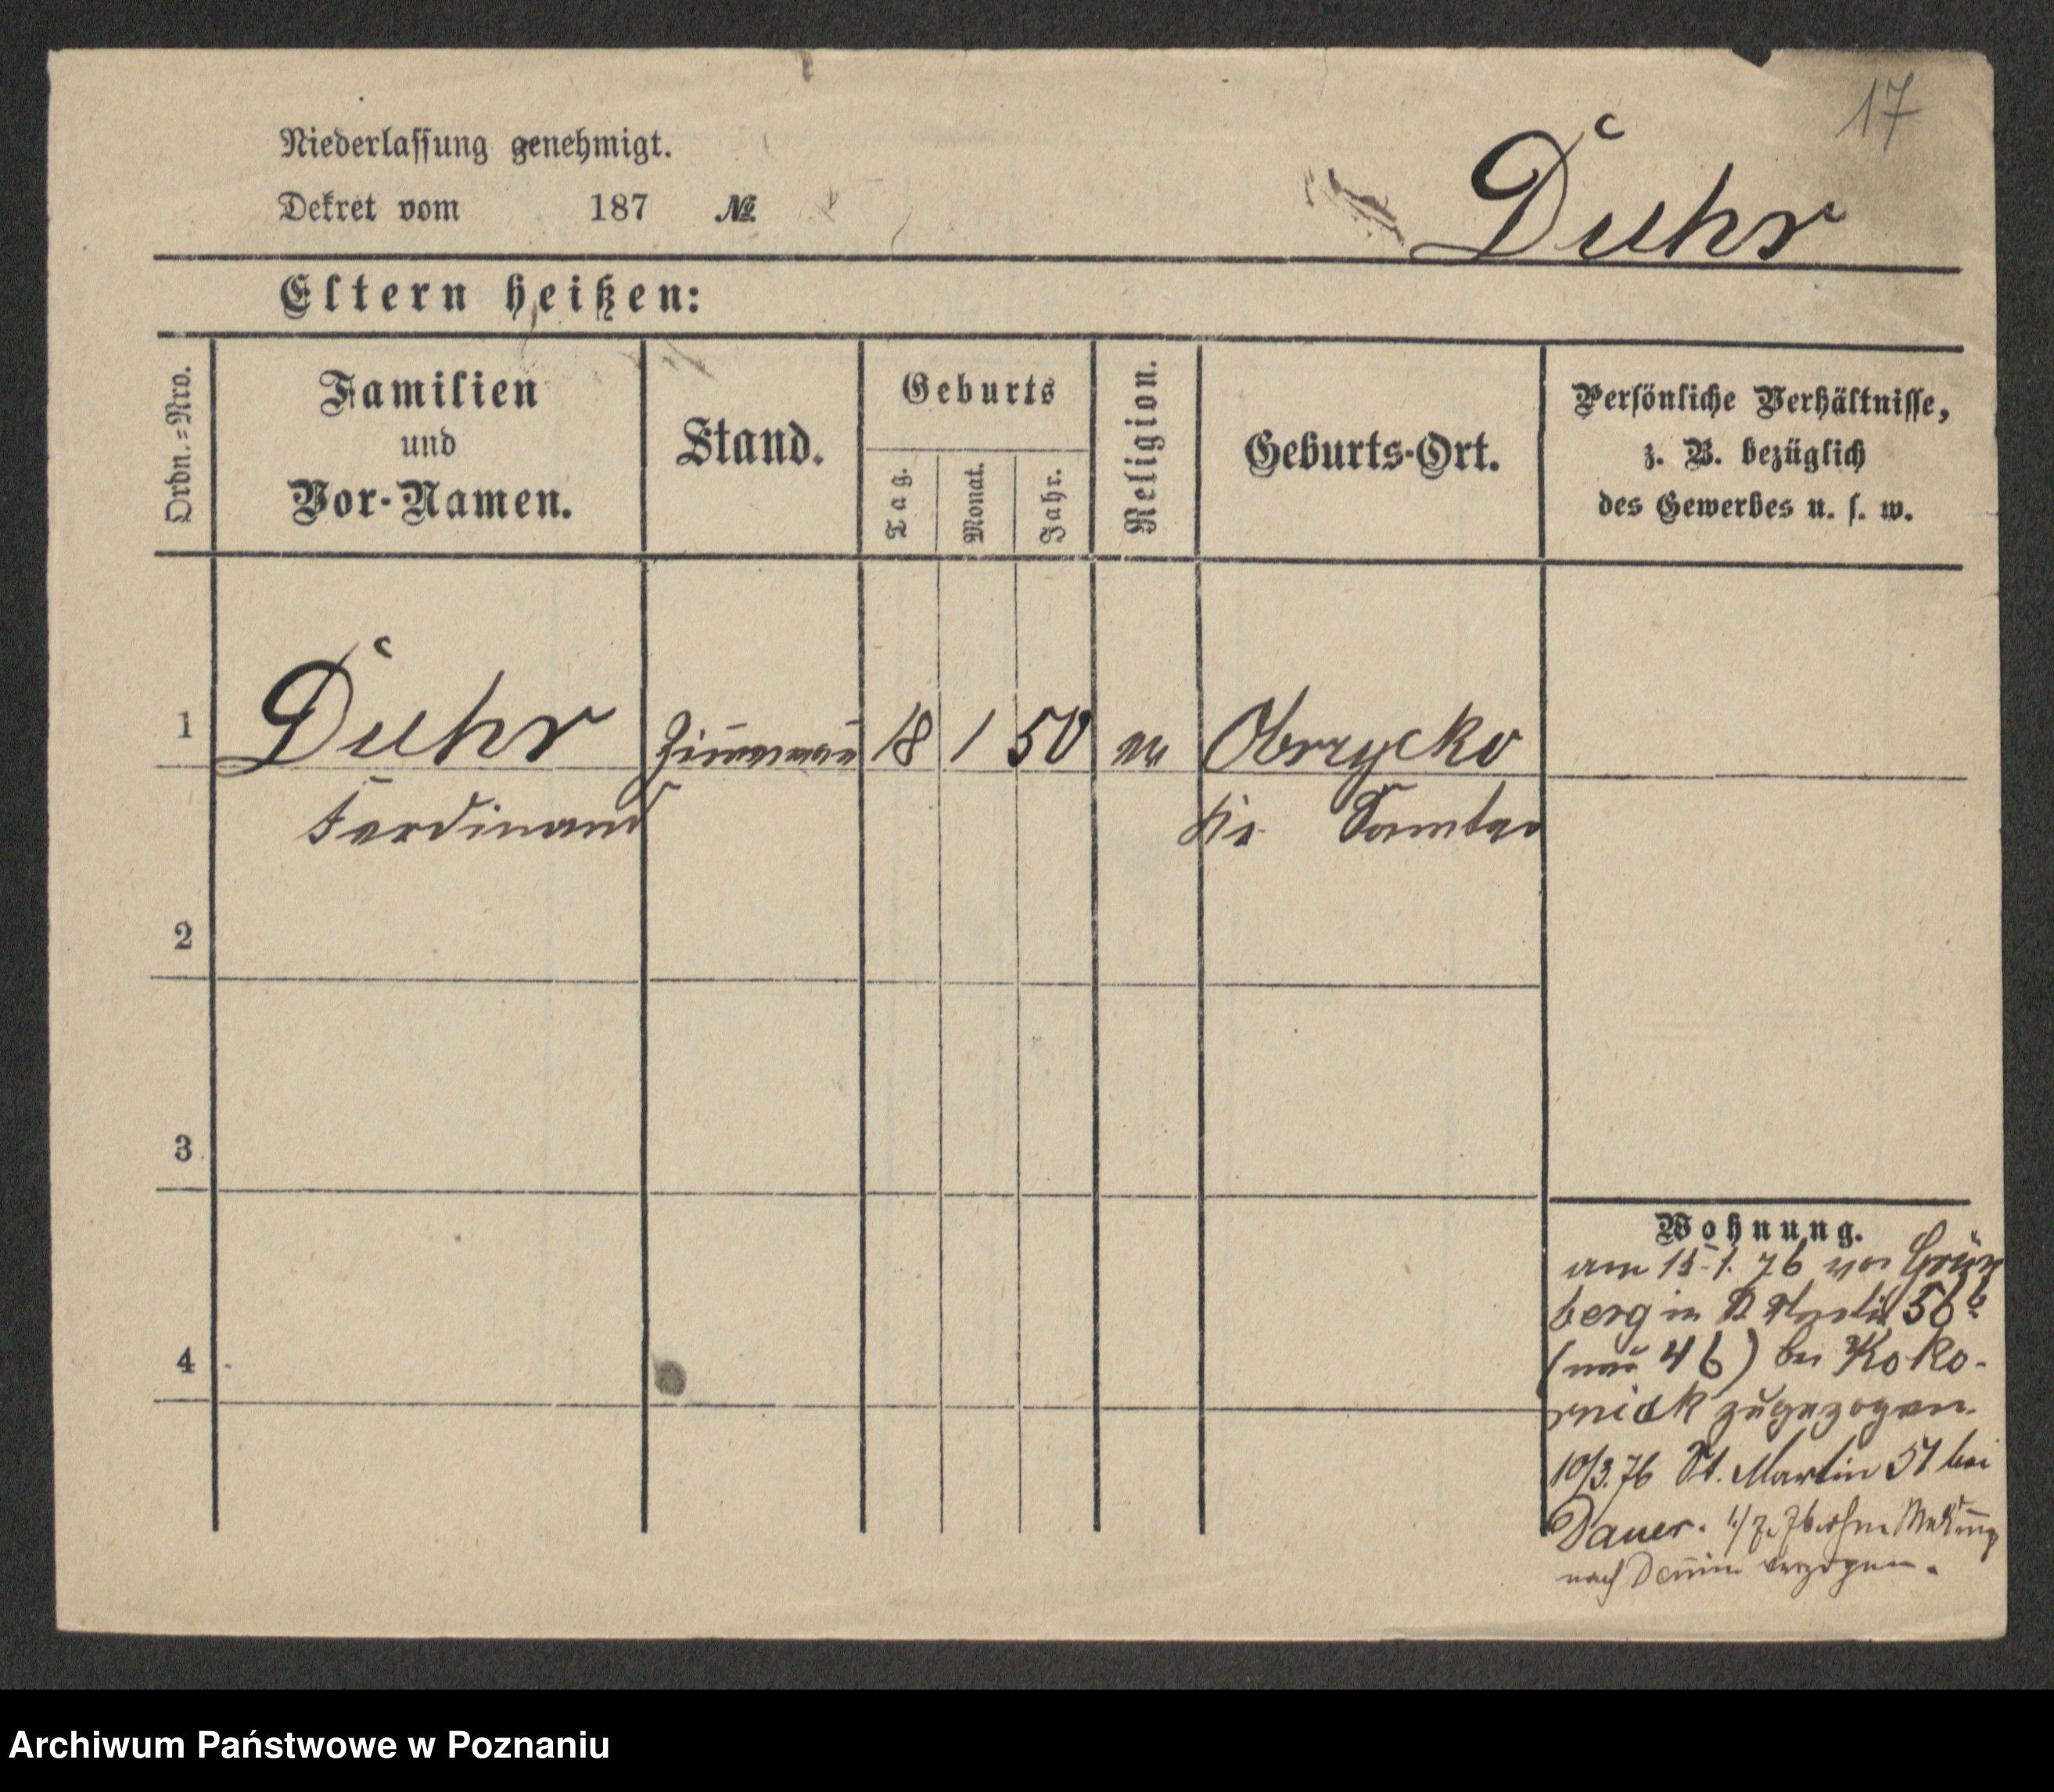 17
Niederlassung genehmigt.
Duhr
Dekret vom 187 №
Eltern heißen:
Ordn.=Nro.
Familien
und
Vor-Namen.
Stand.
Geburts
Tag.
Monat.
Jahr.
Religion.
Geburts-Ort.
Persönliche Verhältnisse,
z. B. bezüglich
des Gewerbes u. s. w.
1 Duhr 18 1 50 Obrzycko
Ferdinand Kr. Samter
2
3
4
Wohnung.
am 15. 1. 76 von Grün
berg in St Martin 56 b
(neu 46) bei Koko-
rnick zugezogen.
10/3. 76 St. Martin 57 bei
Dauer. 1/7. 76 ohne Meldung
nach verzogen.
Archiwum Państwowe w Poznaniu